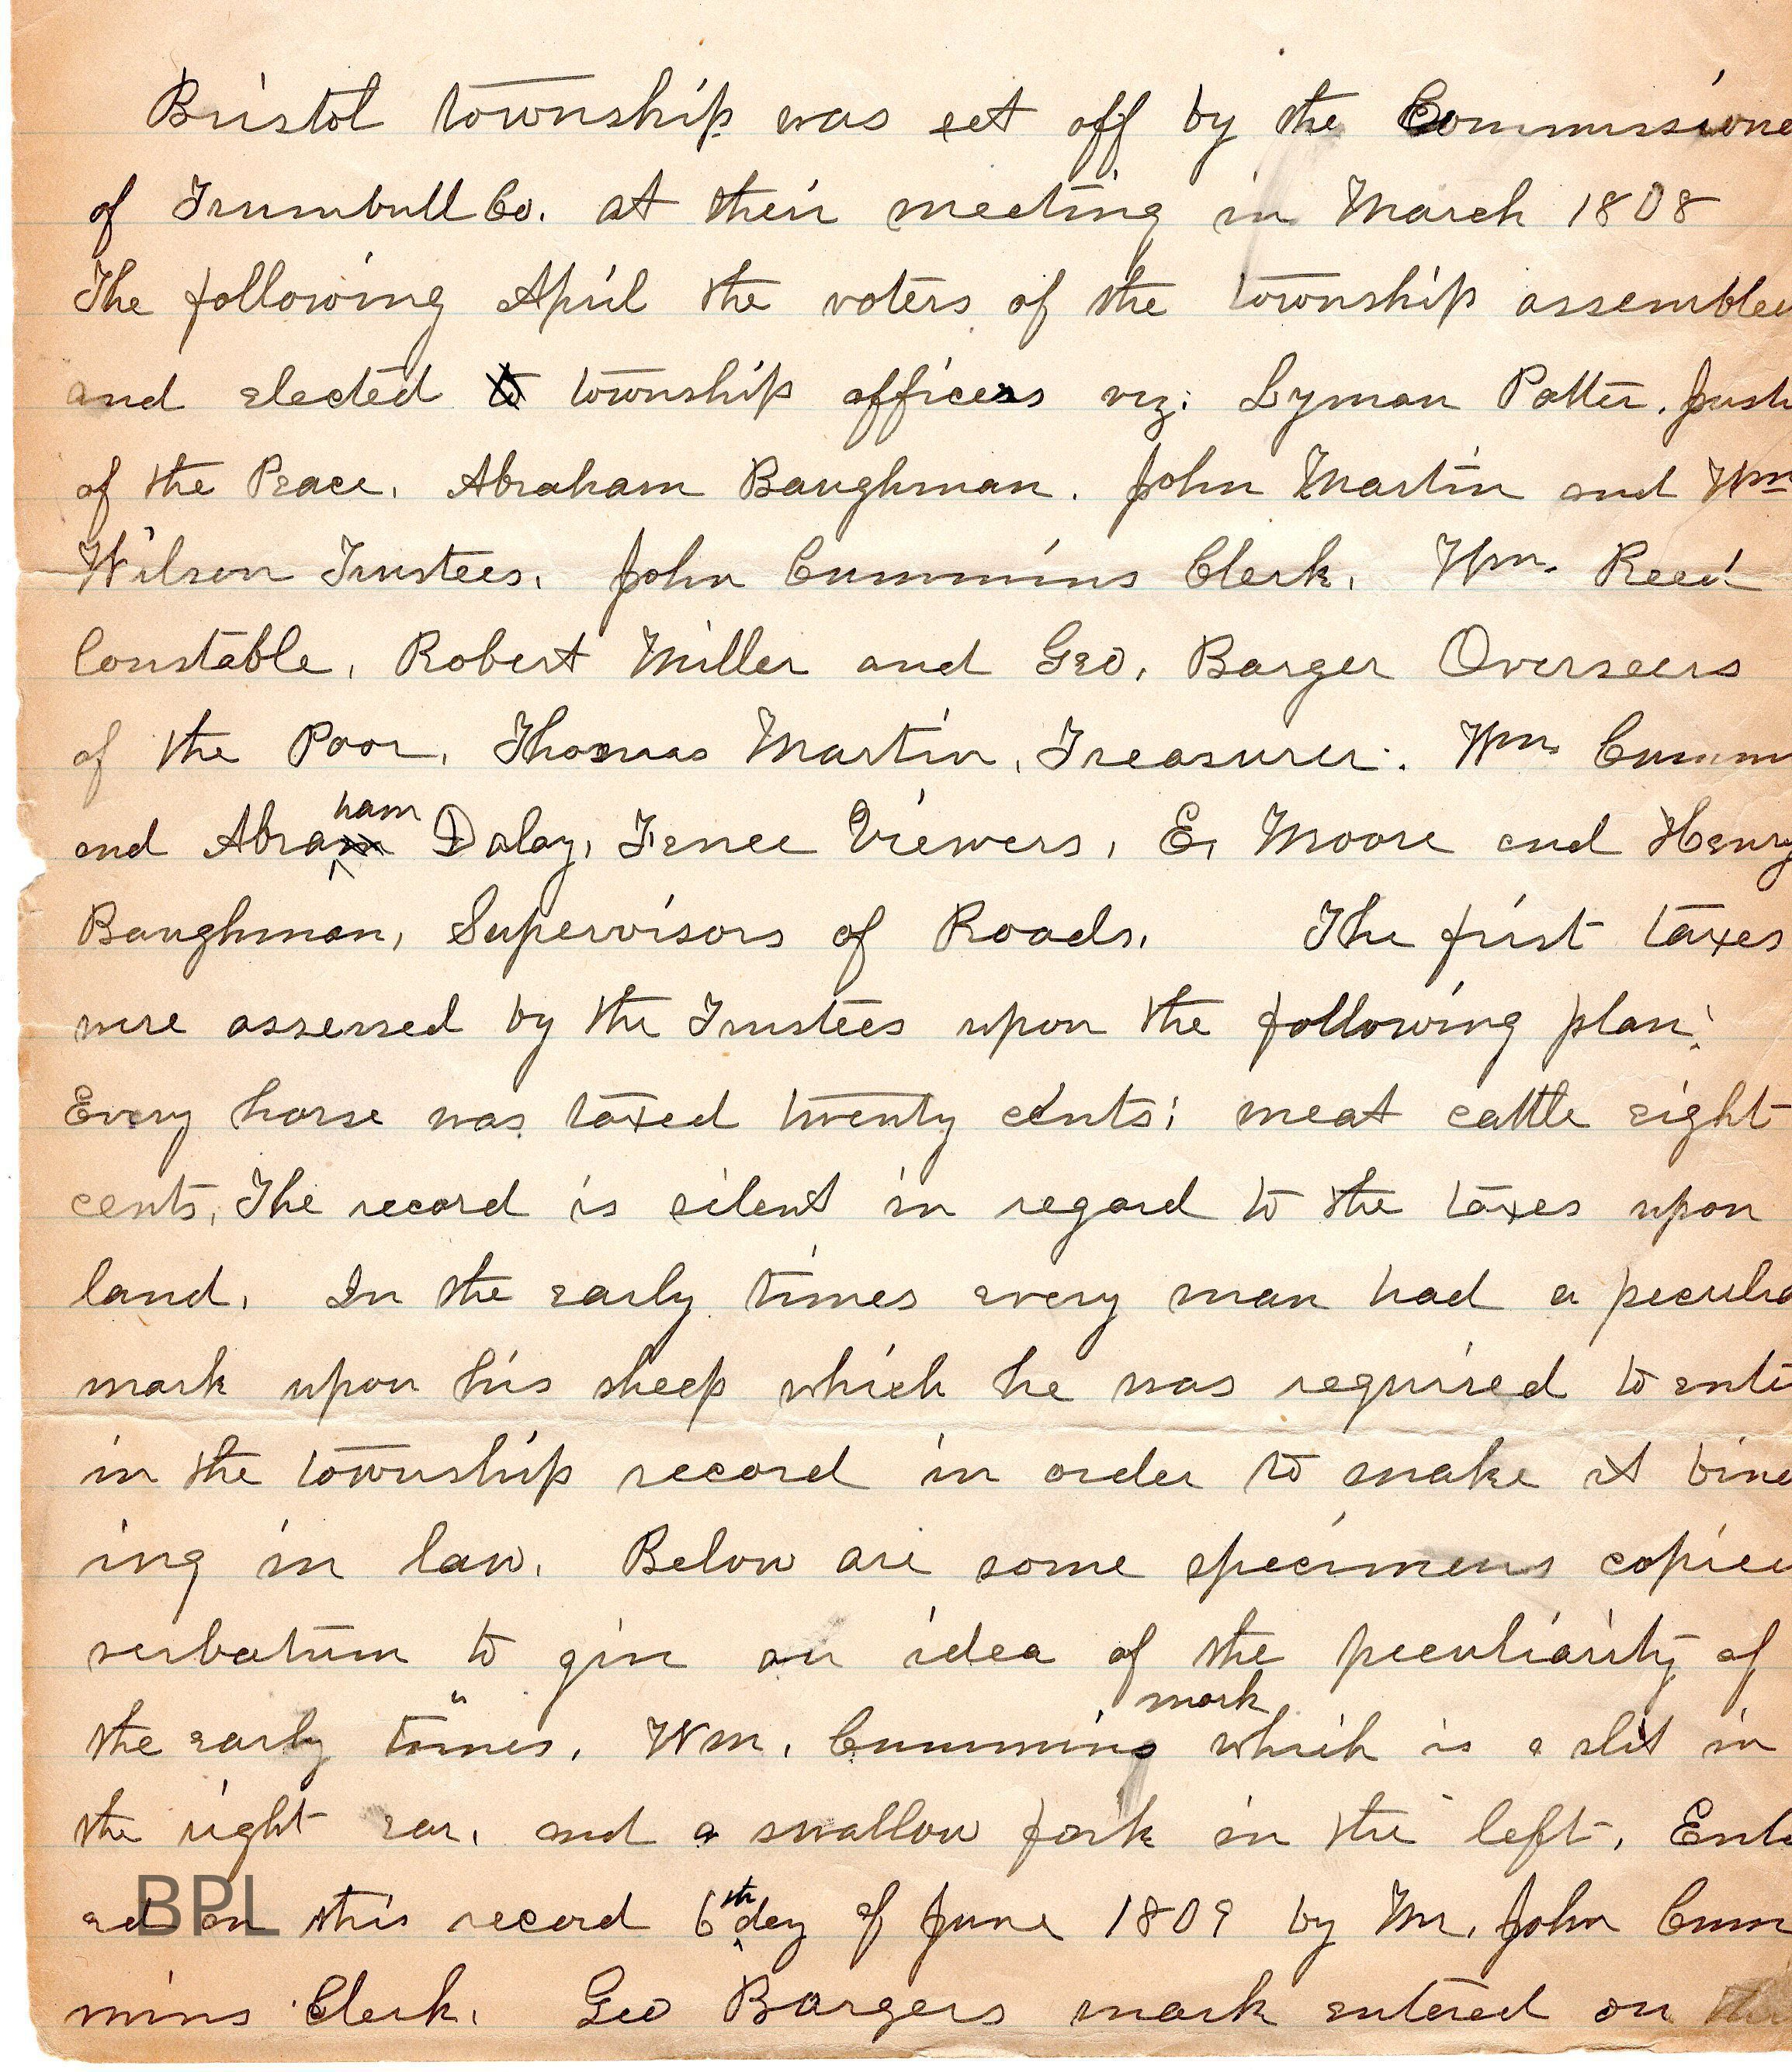 Bristol township was set off by the Commissione
of Trumbull Co. at their meeting in March 1808
The following April the voters of the township assembled
and elected to township officers viz: Lyman Potter, Just
of the Peace, Abraham Baughman, John Martin and Wm
Wilson Trustees, John Cummins Clerk, Wm. Reed
Constable, Robert Miller and Geo, Barger Overseers
of the Poor, Thomas Martin, Treasurer. Wm Cumm
and Abraham Daley, Fence Viewers, E, Moore and Henry
Baughman, Supervisors of Roads. The first taxes
were assessed by the Trustees upon the following plan:
Every horse was taxed twenty cents; meat cattle eight
cents, The record is silent in regard to the taxes upon
land. In the early times every man had a peculia
mark upon his sheep which he was required to ente
in the township record in order to make it bind
ing in law. Below are some specimens copied
verbatum to give an idea of the peculiarity of
the early times. Wm. Cummins mark which is a slit in
the right ear, and a swallow fork in the left, Ente
ed on this record 6th day of June 1809 by M. John Cum
mins Clerk. Geo Bargers mark entered on
BPL